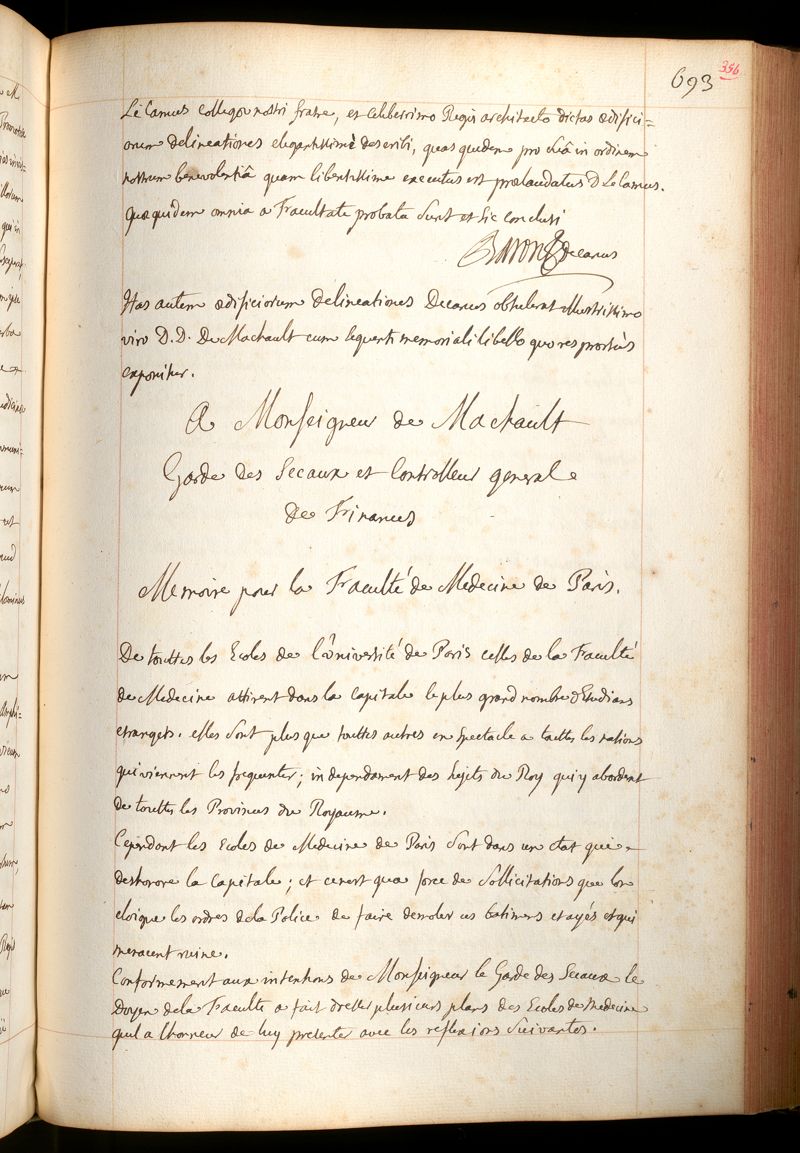 693
356
Le Camus collegae nostri fratre, et celeberrimo Regis architecto dictas ædifici=
orum delineationes elegantissimè describi, quas quidem pro suâ in ordinem
nostrum benevolentiâ quam libentissime executus est prælaudatus D Le Camus.
Quæ quidem omnia a Facultate probata sunt et sic conclusi
Baron Decanus
Has autem ædificiorum delineationes Decanus obtulerat illustrissimo
viro D. D. De Machault cum sequenti memoriali libello quo res prorsùs
exponitur.
A Monseigneur de Machault
Garde des Sceaux et Controlleur general
De Finances
Memoire pour la Faculté de Medecine de Paris.
De touttes les Ecoles de l'université de Paris celles de la Faculté
de Medecine attirent dans la Capitale le plus grand nombre d'Etudians
etrangers. elles sont plus que touttes autres en spectacle a touttes les nations
qui viennent les frequenter; independament des sujets du Roy qui y abordent
de touttes les Provinces du Royaume.
Cependant les Ecoles de Medecine de Paris sont dans un etat qui
deshonore la Capitale; et ce n'est qu'a force de sollicitations que l'on
eloigne les ordres de la Police de faire demolir ces batimens etayés et qui
menacent ruine.
Conformement aux intentions de Monseigneur le Garde des Sceaux le
Doyen de la Faculté a fait dresser plusieurs plans des Ecoles de Medecine
qu'il a l'honneur de luy presenter avec les reflexions suivantes.